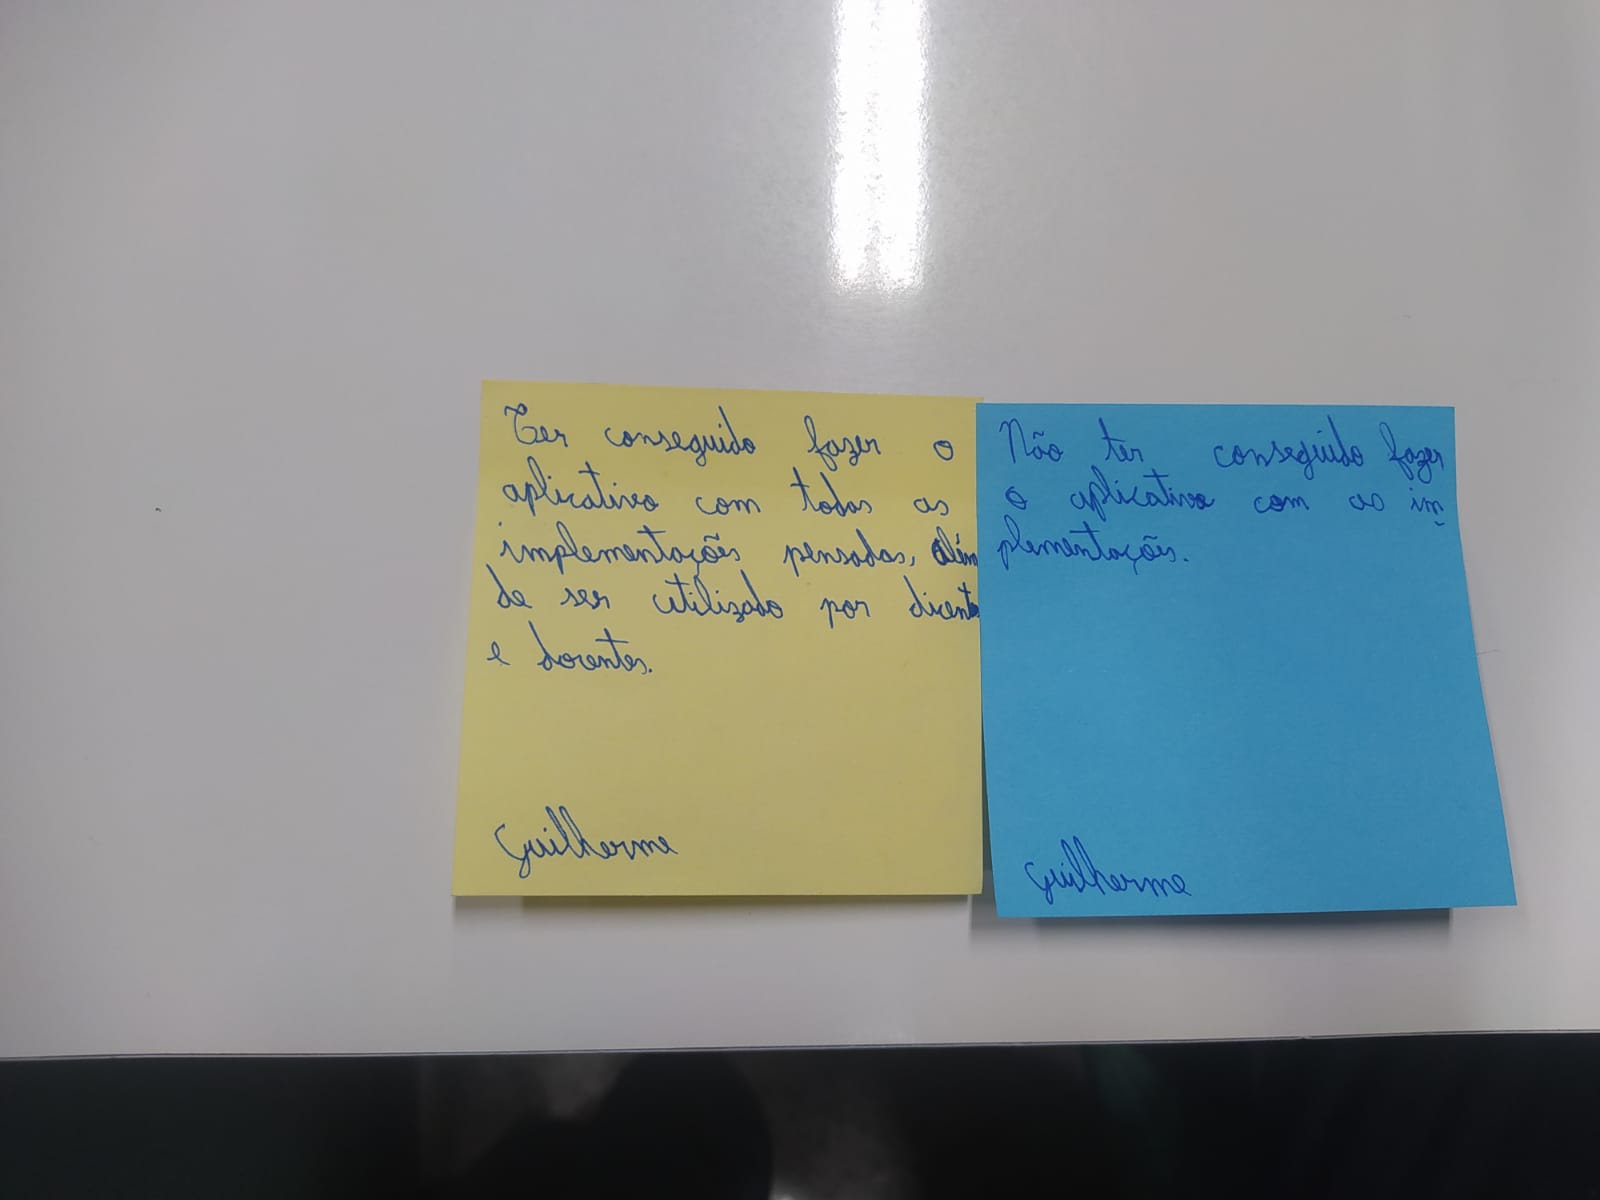 Ter conseguido fazer o
aplicativo com todas as
implementações pensadas, além
de ser utilizado por
e docentes.
Guilherme
Não ter conseguido fazer
o aplicativo com as im
plementações.
Guilherme